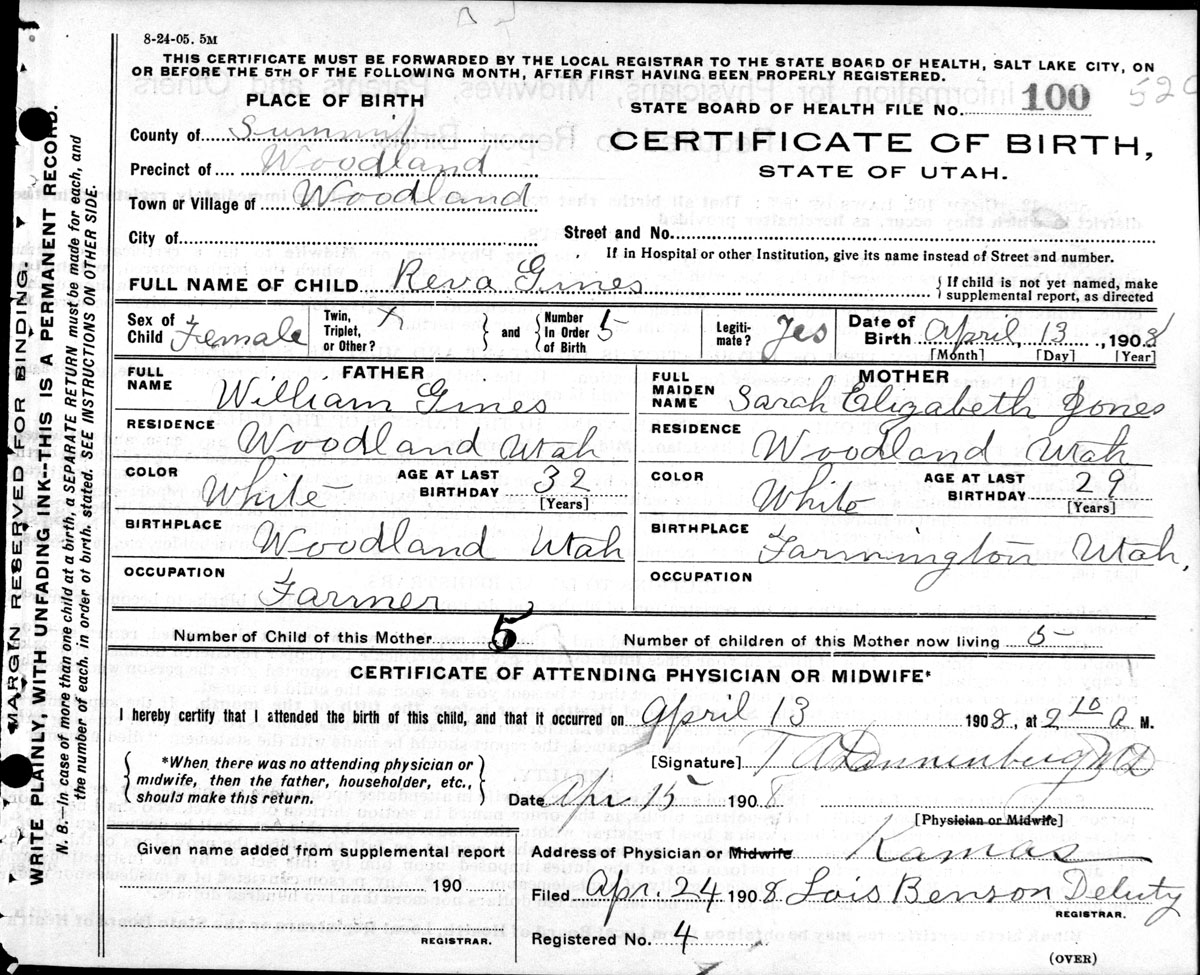 8-24-05. 5M
THIS CERTIFICATE MUST BE FORWARDED BY THE LOCAL REGISTRAR TO THE STATE BOARD OF HEALTH, SALT LAKE CITY, ON
OR BEFORE THE 5TH OF THE FOLLOWING MONTH, AFTER FIRST HAVING BEEN PROPERLY REGISTERED.
PLACE OF BIRTH
STATE BOARD OF HEALTH FILE NO. 100
County of Summit
CERTIFICATE OF BIRTH,
Precinct of Woodland
STATE OF UTAH.
Town or Village of Woodland
City of
Street and No.
If in Hospital or other Institution, give its name instead of Street and number.
FULL NAME OF CHILD Reva Gines
If child is not yet named, make
supplemental report, as directed
Sex of Child Female
Twin, Triplet, or Other? X
and
Number In Order of Birth 5
Legiti-mate? Yes
Date of Birth April, 13, 1908
[Month] [Day] [Year]
FATHER
FULL NAME William Gines
RESIDENCE Woodland Utah
COLOR White
AGE AT LAST BIRTHDAY 32
[Years]
BIRTHPLACE Woodland Utah
OCCUPATION Farmer
MOTHER
FULL MAIDEN NAME Sarah Elizabeth Jones
RESIDENCE Woodland Utah
COLOR White
AGE AT LAST BIRTHDAY 29
[Years]
BIRTHPLACE Farmington Utah,
OCCUPATION
Number of Child of this Mother 5
Number of children of this Mother now living 5
CERTIFICATE OF ATTENDING PHYSICIAN OR MIDWIFE*
I hereby certify that I attended the birth of this child, and that it occurred on April 13 1908, at 2 10 a M.
*When there was no attending physician or
midwife, then the father, householder, etc.,
should make this return.
[Signature] T A Dannenberg MD
Date Apr 15 1908
[Physician or Midwife]
Given name added from supplemental report
190
REGISTRAR.
Address of Physician or Midwife Kamas
Filed Apr. 24 1908 Lois Benson Deputy
REGISTRAR.
Registered No. 4
(OVER)
MARGIN RESERVED FOR BINDING.
WRITE PLAINLY, WITH UNFADING INK--THIS IS A PERMANENT RECORD.
N. B.--In case of more than one child at a birth, a SEPARATE RETURN must be made for each, and
the number of each, in order of birth, stated. SEE INSTRUCTIONS ON OTHER SIDE.